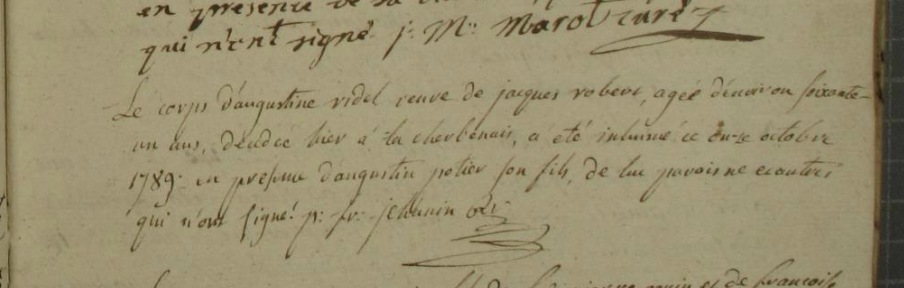 en presence de
qui n'ont signé j: M: Marot curé
Le corps d'augustine ridel veuve de jacques robert, agée d'environ soixante-
un ans, decedee hier à la cherbenais, a eté inhumé ce onze octobre
1789. en presence d'augustin potier son fils, de luc et autres
qui n'ont signé. p: fr: jehanin
de françois